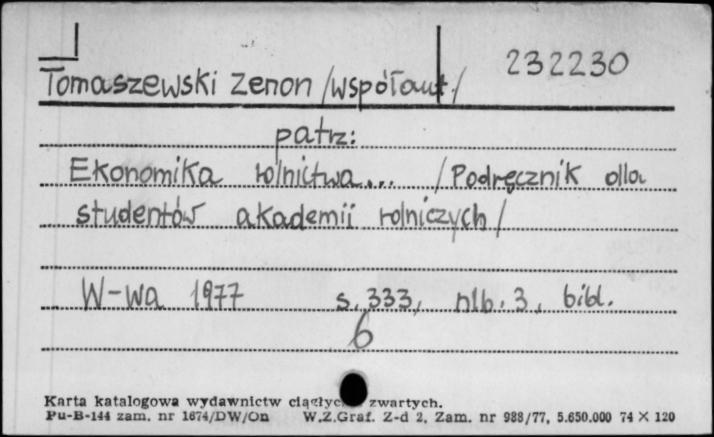 232230
Tomaszewski Zenon /współaut./
patrz:
Ekonomika rolnictwa... /Podręcznik dla
studentów akademii rolniczych/
W-wa 1977 s. 333, nlb. 3, bibl.
6
Karta katalogowa wydawnictw zwartych.
Pu-B-144 zam. nr 1674/DW/On W.Z.Graf. Z-d 2, Zam. nr 988/77, 5.650.000 74 × 120